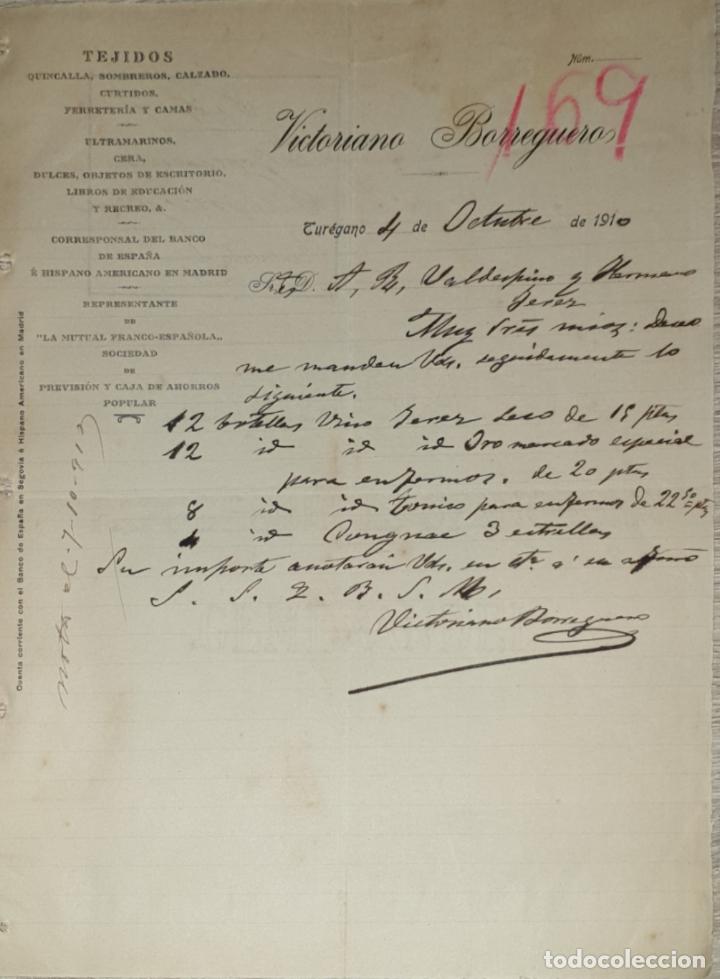 TEJIDOS
QUINCALLA, SOMBREROS, CALZADO,
CURTIDOS,
FERRETERÍA Y CAMAS
ULTRAMARINOS,
CERA,
DULCES, OBJETOS DE ESCRITORIO,
LIBROS DE EDUCACIÓN
Y RECREO, &.
CORRESPONSAL DEL BANCO
DE ESPAÑA
É HISPANO AMERICANO EN MADRID
REPRESENTANTE
DE
"LA MUTUAL FRANCO-ESPAÑOLA,,
SOCIEDAD
DE
PREVISIÓN Y CAJA DE AHORROS
POPULAR
Cuenta corriente con el Banco de España en Segovia é Hispano Americano en Madrid
Núm.
169
Victoriano Borreguero
Turégano 4 de Octubre de 1910
Sr. D. A, R, Valdespino y Hermano
Jerez
Muy Srés mios: Deseo
me manden Vds. seguidamente lo
siguiente.
12 botellas Vino Jerez Seco de 15 ptas
12 id id id Oro marcado especial
para enfermos. de 20 ptas
8 id id tonico para enfermos de 22 50 pts
4 id Congnac 3 estrellas
Su importe anotarán Vds. en cta
S. S. Q. B. S. M,
Victoriano Borreguero
7-10-910
todocoleccion